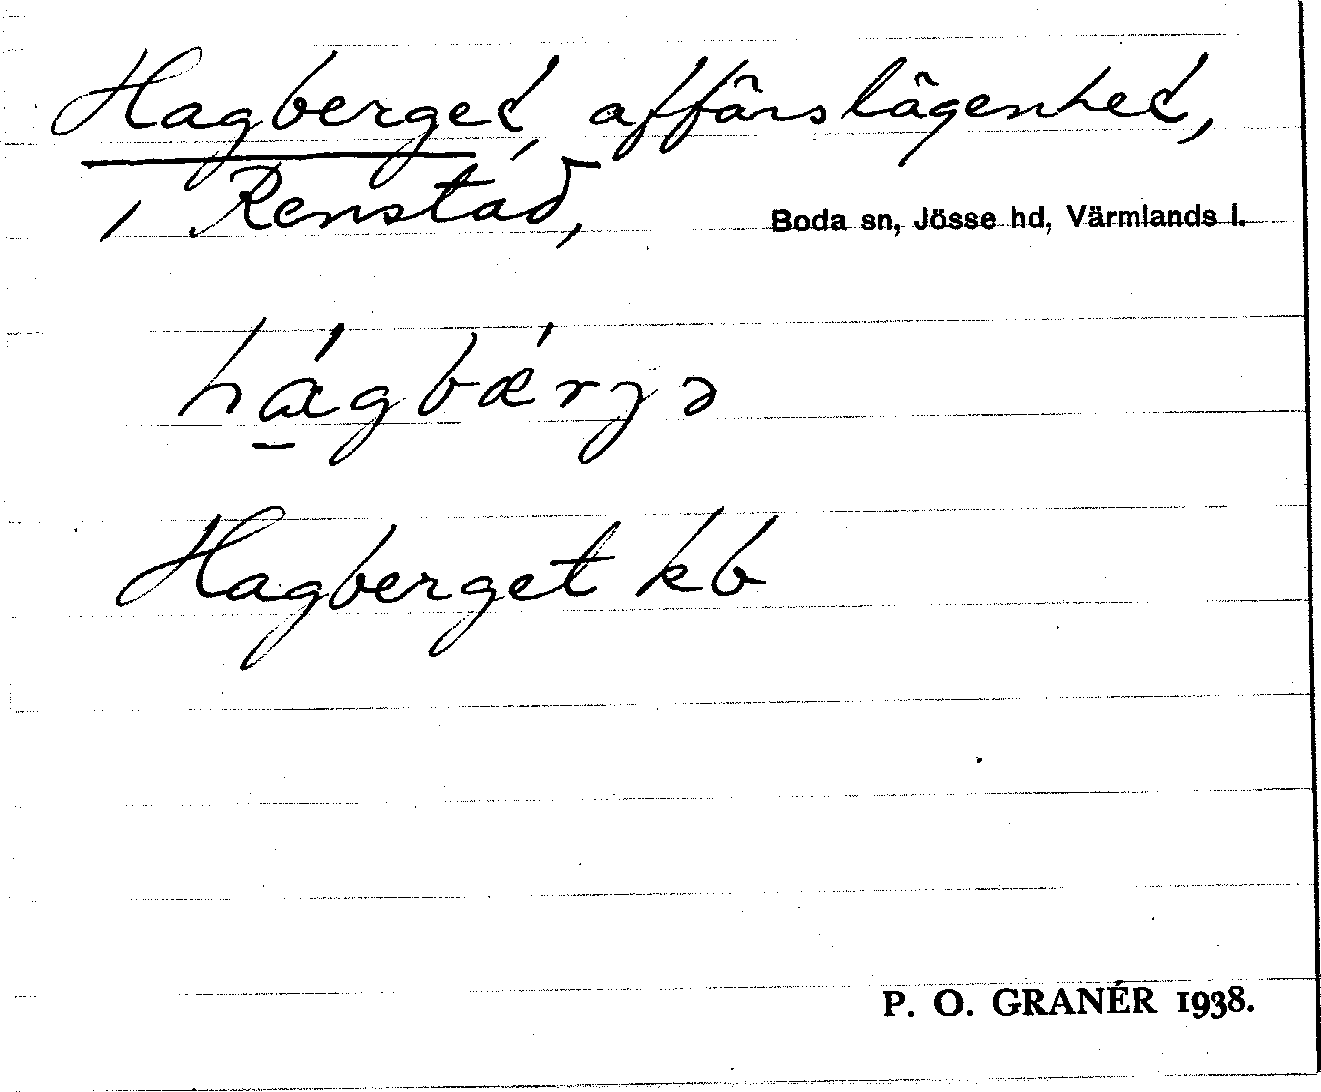 Hagberget, affärslägenhet,
i Renstad,
Boda sn, Jösse hd, Värmlands l.
hágbǽrjə
Hagberget kb
P. O. GRANÉR 1938.